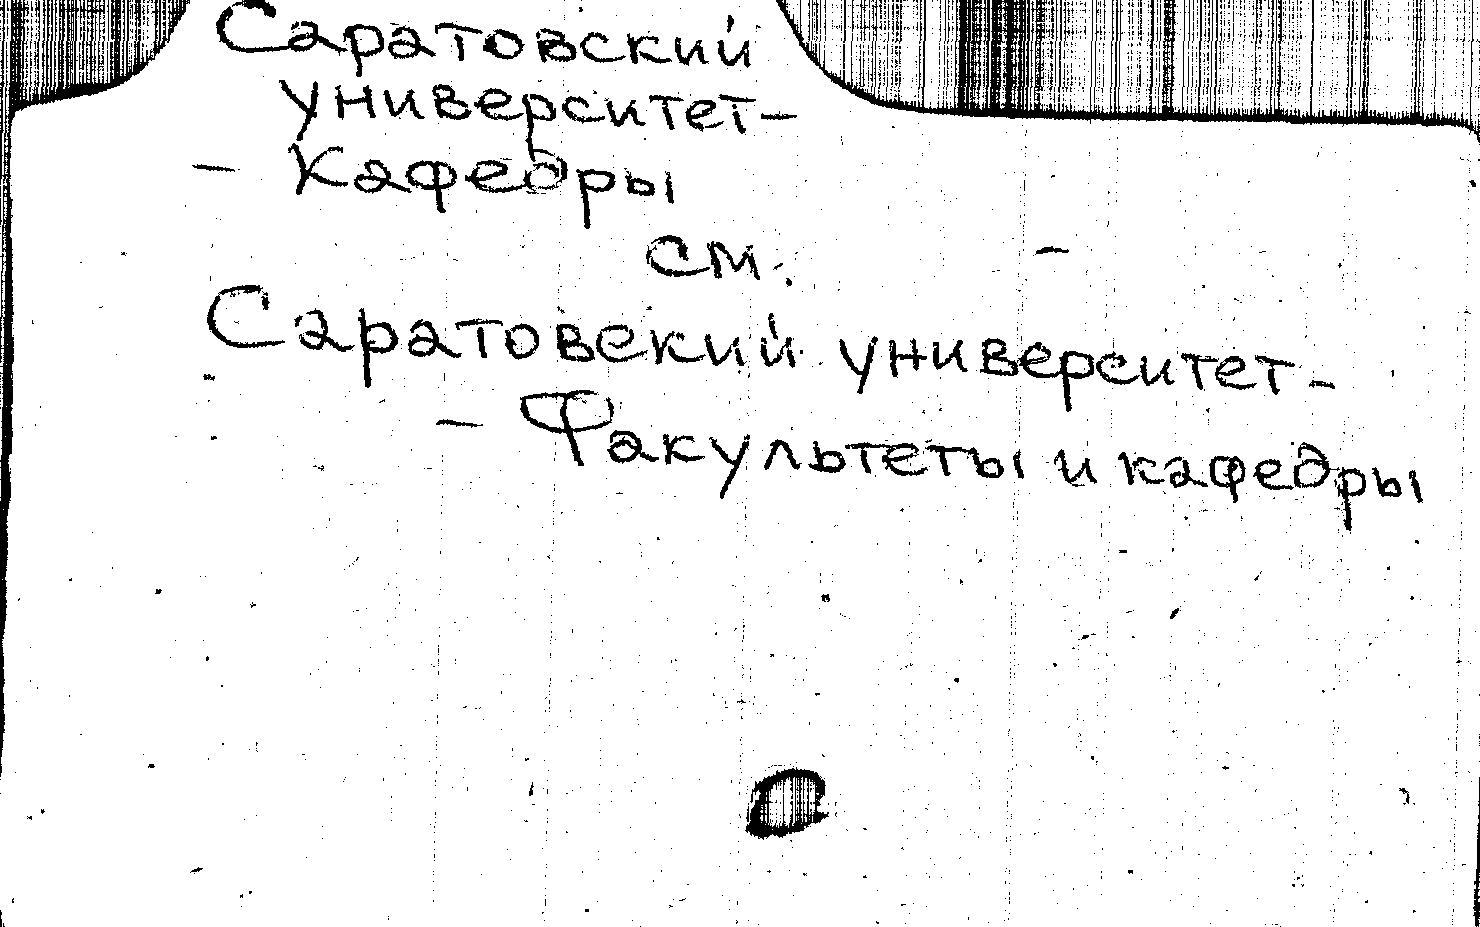 Саратовский
университет-
- Кафедры
см.
Саратовский университет-
- Факультеты и кафедры